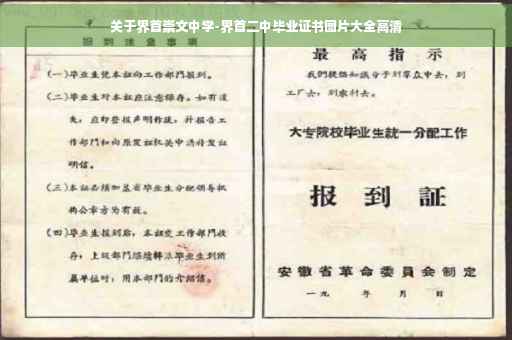 关于界首崇文中学-界首二中毕业证书图片大全高清
报到注意事项
(一)毕业生凭本证向工作部门报到。
(二)毕业生对本证应注意保存。如有遗
失,应即登报声明作废,并报告工
作部门和向原发证机关申请补发证
明信。
(三)本证必须加盖省毕业生分配领导机
构公章方为有效。
(四)毕业生报到后,本证交工作部门收
存;上级部门继续转派毕业生到所
属单位时,用本部门的介绍信。
最高指示
我們提倡知識分子到羣众中去,到
工厂去,到农村去。
大专院校毕业生統一分配工作
报到証
安徽省革命委員会制定
一九 年 月 日